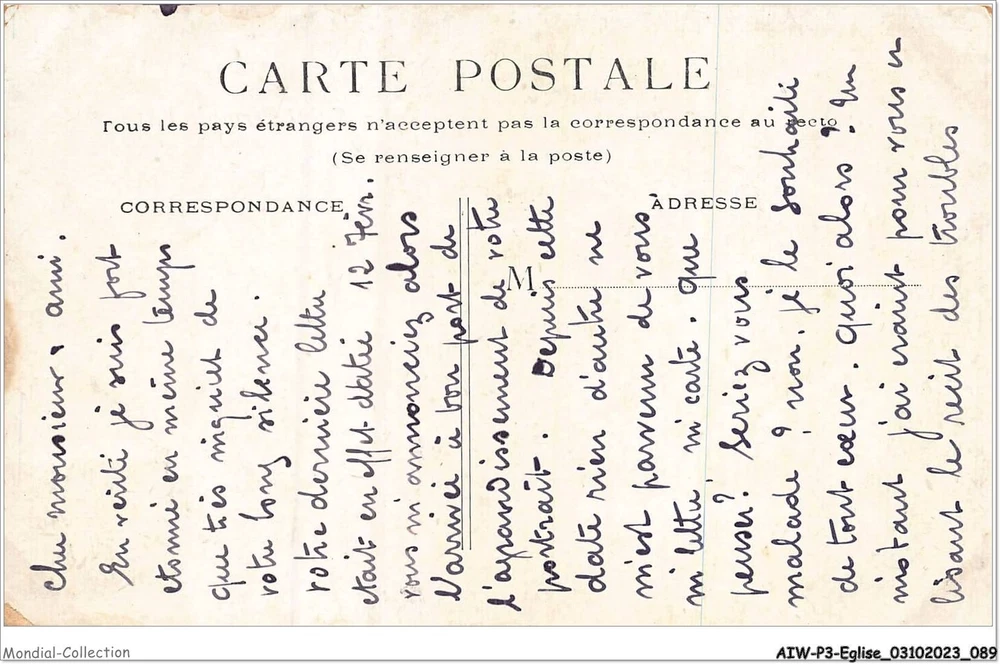 CARTE POSTALE
Tous les pays étrangers n'acceptent pas la correspondance au recto
(Se renseigner à la poste)
CORRESPONDANCE
ADRESSE
M
Cher monsieur & ami.
En vérité je suis fort
etonné en même temps
que très inquiet de
votre long silence.
votre dernière lettre
etait en effet datée 12 Févr.
vous m'annonciez alors
l'arrivée à bon port de
l'agrandissement de votre
portrait. Depuis cette
date rien d'autre ne
m'est parvenu de vous
ni lettre ni carte. que
penser? Seriez vous
malade? non, je le souhaite
de tout cœur. quoi alors? Un
instant j'ai craint pour vous en
lisant le récit des troubles
Mondial-Collection
AIW-P3-Eglise_03102023_089